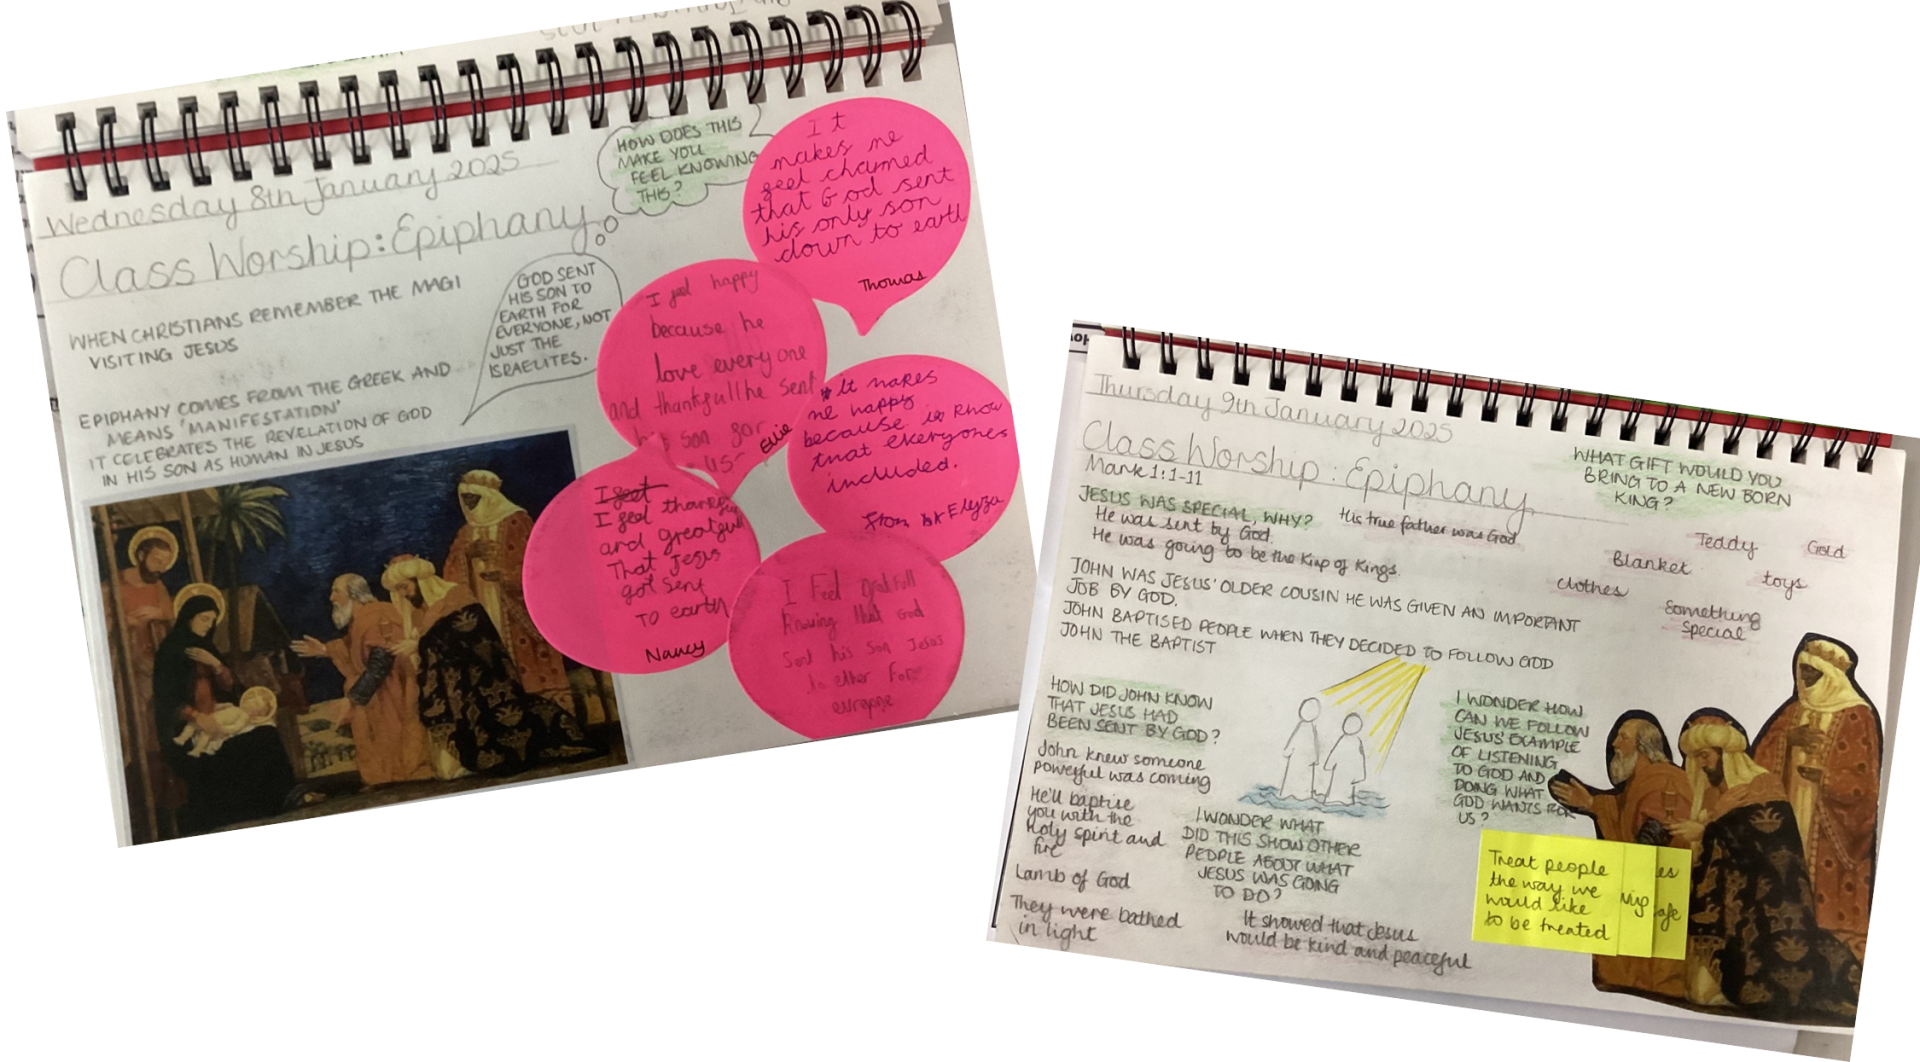 Wednesday 8th January 2025
Class Worship: Epiphany
WHEN CHRISTIANS REMEMBER THE MAGI
VISITING JESUS
EPIPHANY COMES FROM THE GREEK AND
MEANS 'MANIFESTATION'
IT CELEBRATES THE REVELATION OF GOD
IN HIS SON AS HUMAN IN JESUS
GOD SENT
HIS SON TO
EARTH FOR
EVERYONE, NOT
JUST THE
ISRAELITES.
HOW DOES THIS
MAKE YOU
FEEL KNOWING
THIS?
It
makes me
feel charmed
that God sent
his only son
down to earth
Thomas
I feel happy
because he
love every one
and thankfull he sent
his son for
us
Evie
It makes
me happy
because i know
that ekeryones
included.
From Elyza
I feel
I feel thankful
and greatfull
That Jesus
got sent
TO earth
Nancy
I Feel gratfull
knowing that God
Sent his Son Jesus
to ether For
evrgone
Thursday 9th January 2025
Class Worship: Epiphany
Mark 1:1-11
JESUS WAS SPECIAL, WHY? His true father was God
He was sent by God.
He was going to be the King of Kings.
JOHN WAS JESUS' OLDER COUSIN HE WAS GIVEN AN IMPORTANT
JOB BY GOD.
JOHN BAPTISED PEOPLE WHEN THEY DECIDED TO FOLLOW GOD
JOHN THE BAPTIST
WHAT GIFT WOULD YOU
BRING TO A NEW BORN
KING?
Teddy
Gold
Blanket
toys
clothes
Something
Special
HOW DID JOHN KNOW
THAT JESUS HAD
BEEN SENT BY GOD?
John knew someone
powerful was coming
He'll baptise
you with the
Holy spirit and
fire
Lamb of God
They were bathed
in light
I WONDER WHAT
DID THIS SHOW OTHER
PEOPLE ABOUT WHAT
JESUS WAS GOING
TO DO?
It showed that Jesus
would be kind and peaceful
I WONDER HOW
CAN WE FOLLOW
JESUS' EXAMPLE
OF LISTENING
TO GOD AND
DOING WHAT
GOD WANTS FOR
US?
Treat people
the way we
would like
to be treated